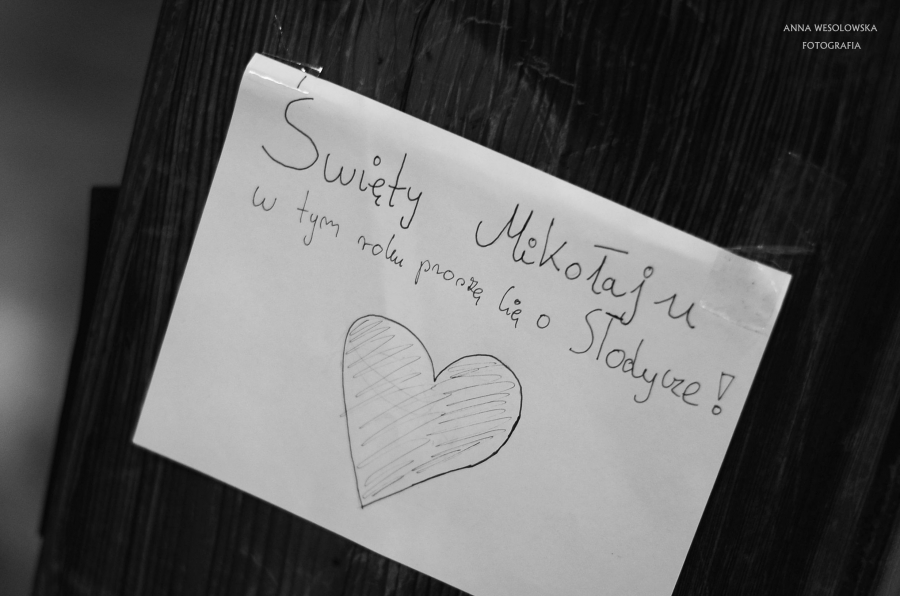 ANNA WESOLOWSKA
FOTOGRAFIA
Święty Mikołaju
w tym roku proszę Cię o Słodycze!